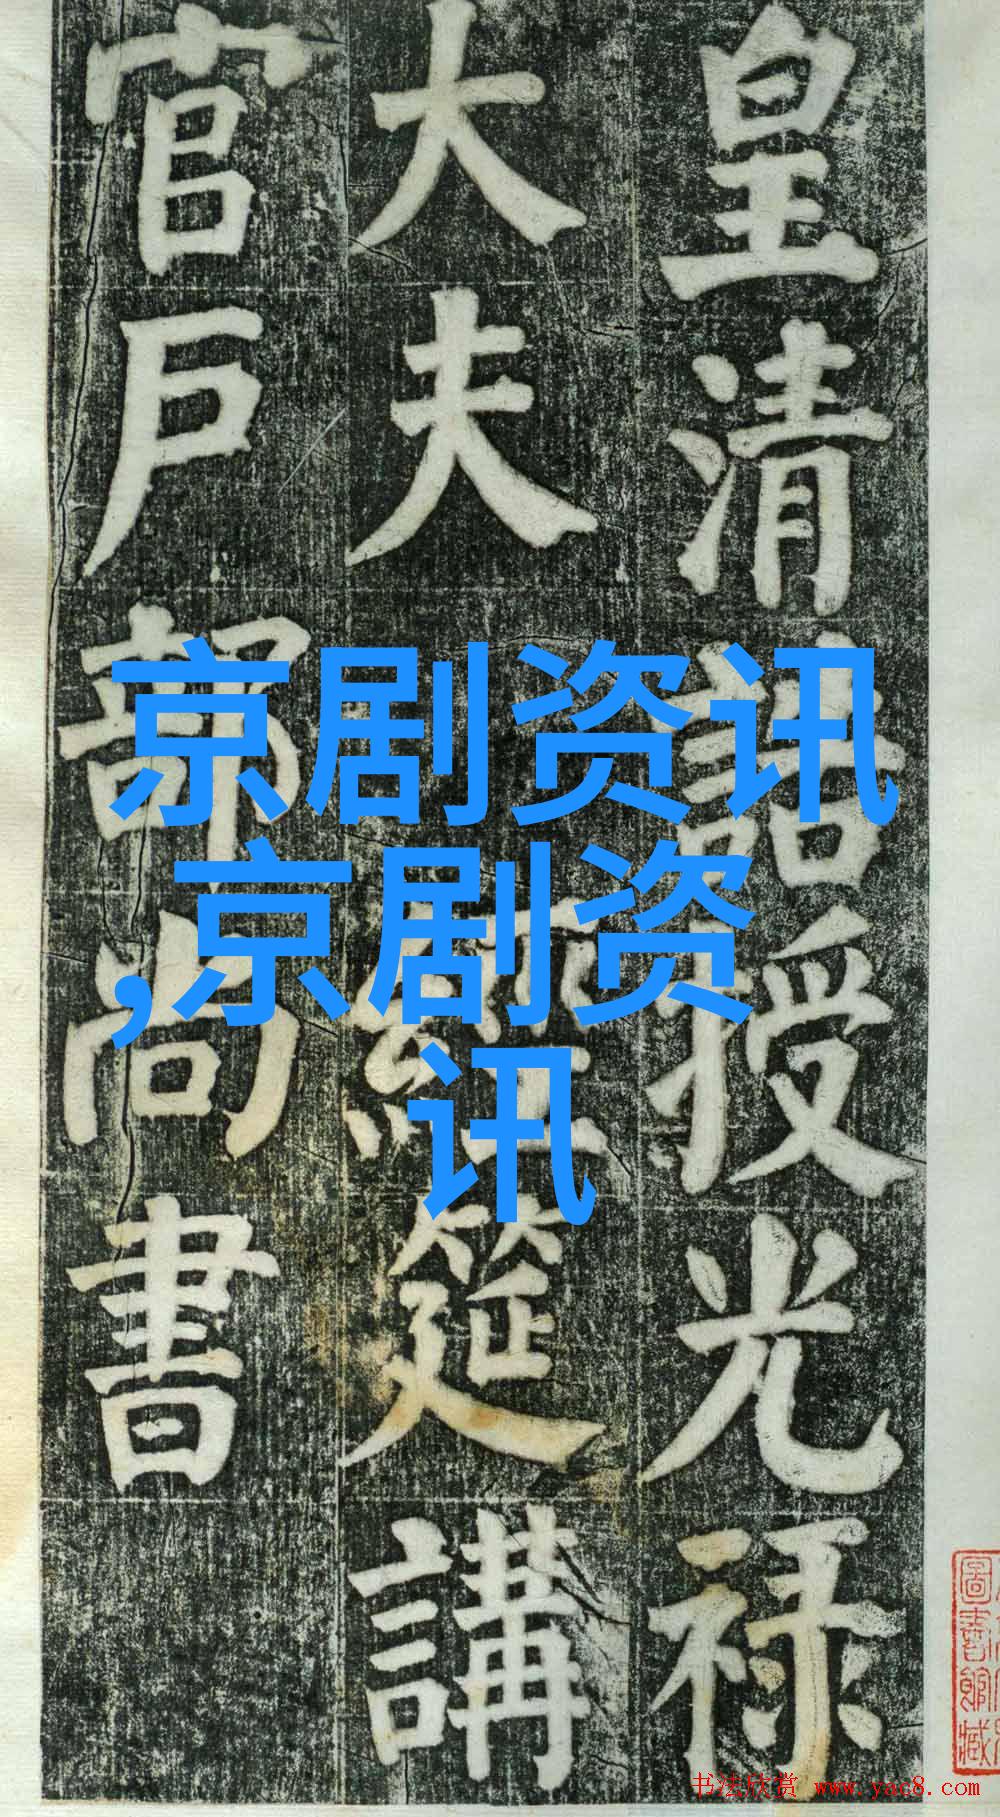 皇清誥授光祿
大夫經筵講
官戶部尚書
京剧资讯
,京剧资
讯
圖書館藏
书法欣赏 www.yac8.com